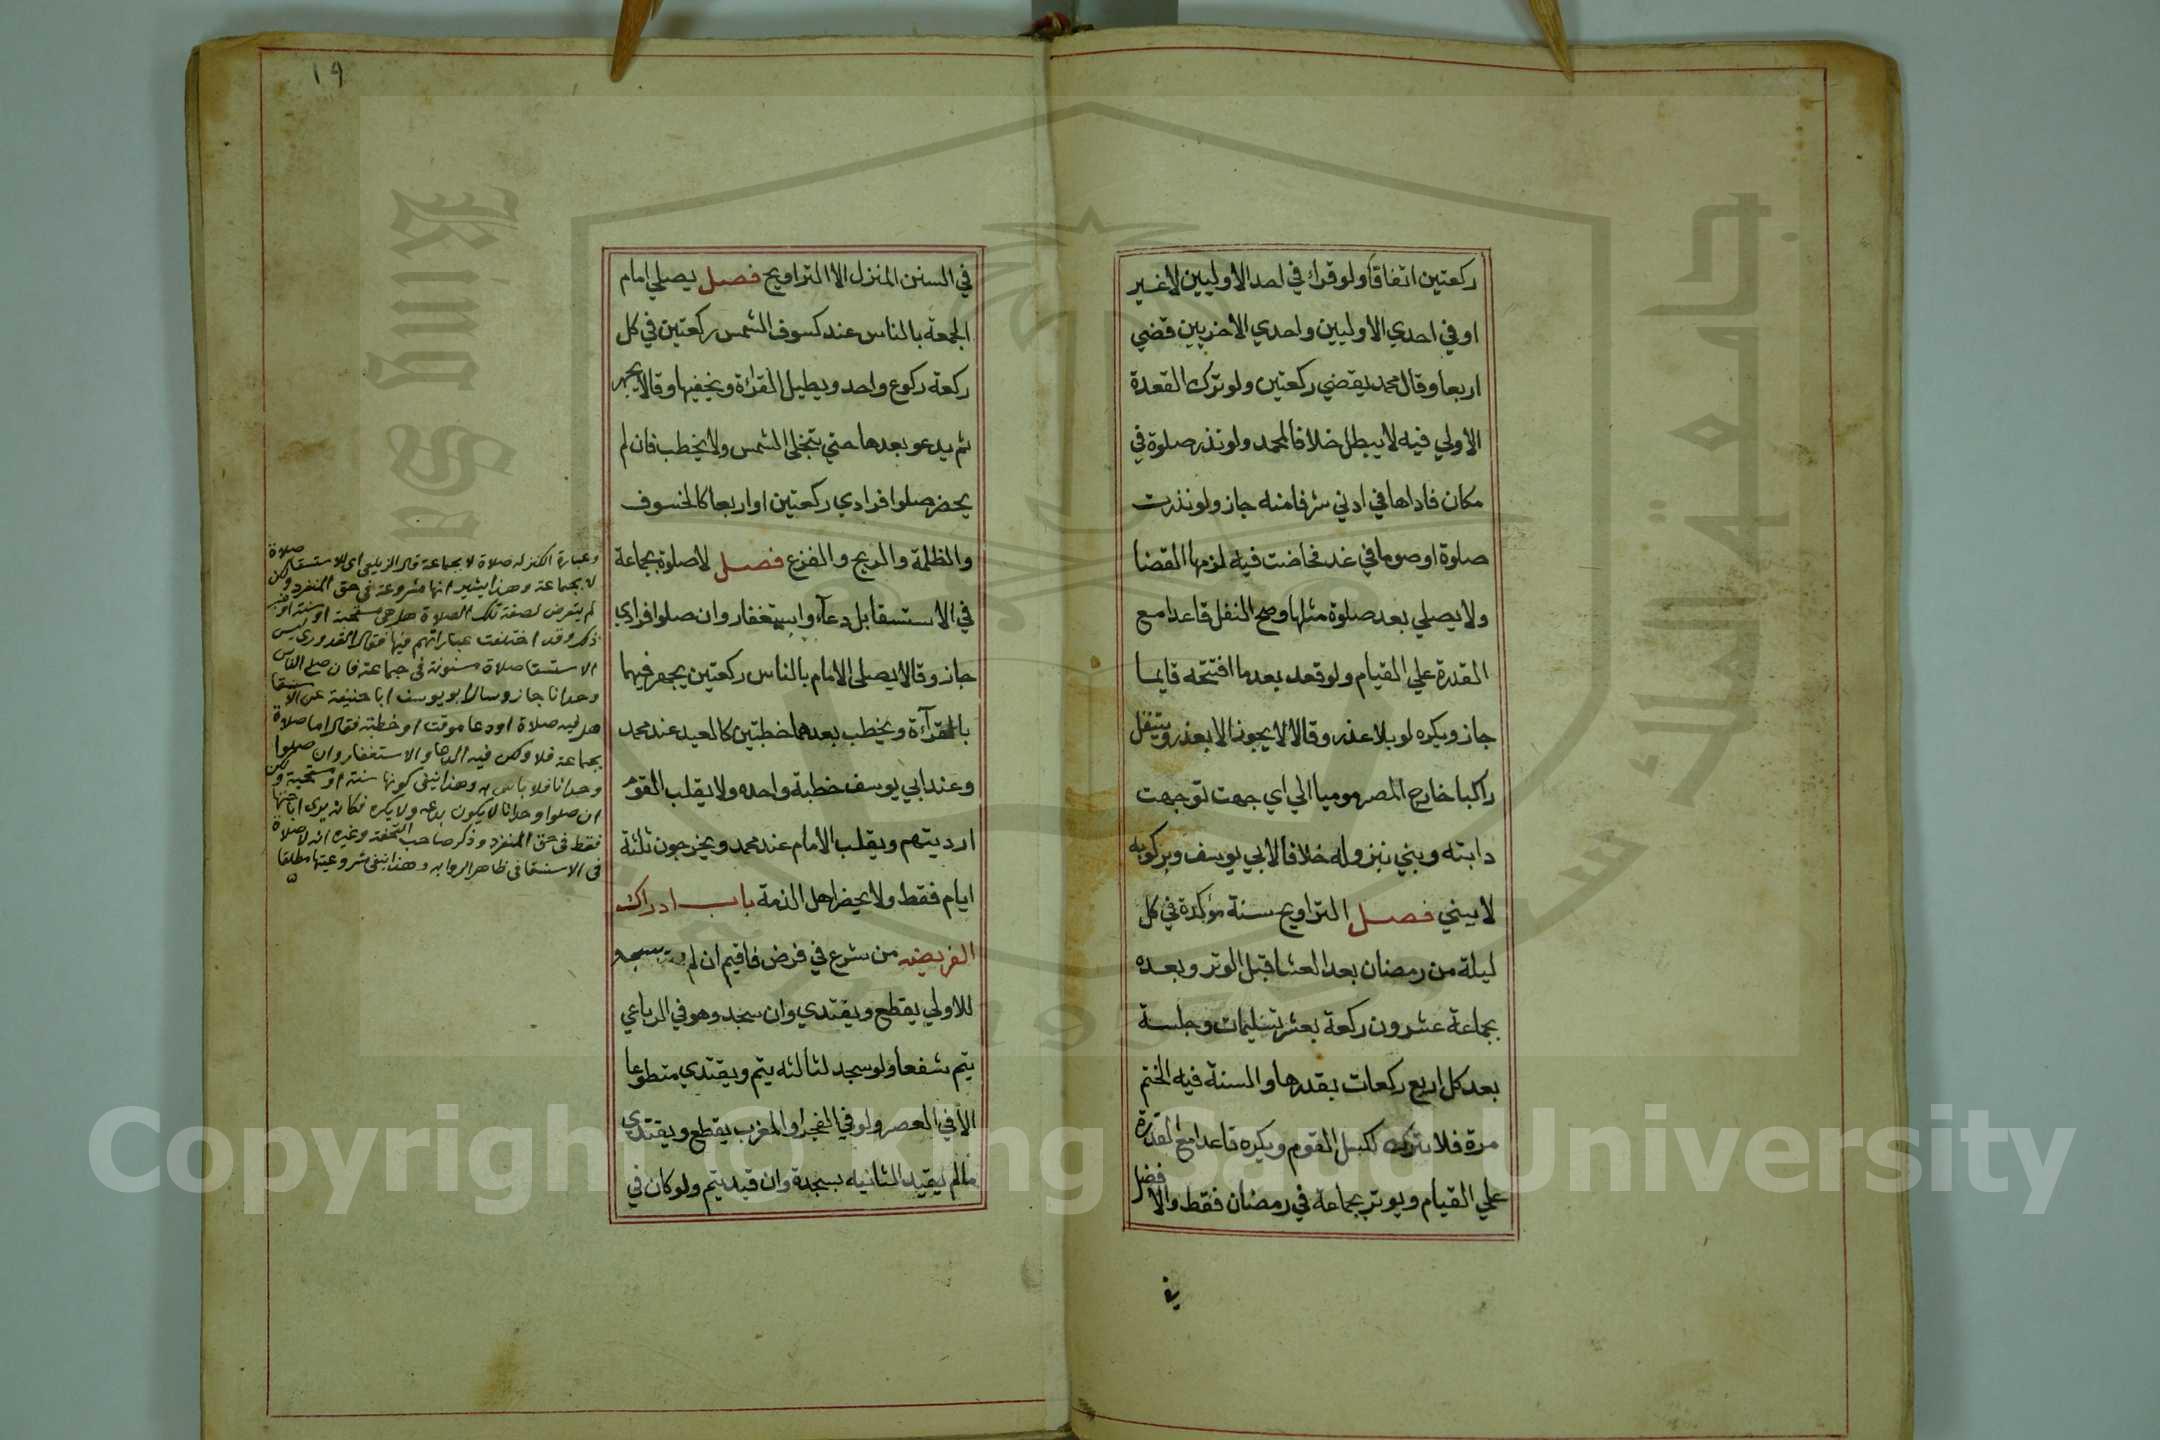 ركعتين اتفاقا ولو قرا في احد الاوليين لا غير
او في احدي الاوليين واحدي الاخريين قضي
اربعا وقال محمد يقضي ركعتين ولو ترك القعدة
الاولي فيه لا يبطل خلافا لمحمد ولو نذر صلوة في
مكان فاداها في ادني شرفا منه جاز ولو نذرت
صلوة او صوما في غد فحاضت فيه لزمها القضا
ولا يصلي بعد صلوة مثلها وصح النفل قاعدا مع
القدرة علي القيام ولو قعد بعدما افتتحه قايما
جاز ويكره لو بلا عذر وقالا لا يجوز الا بعذر ويتنفل
راكبا خارج المصر موميا الي اي جهت توجهت
دابته ويبني بنزوله خلافا لابي يوسف وبركوبه
لا يبني فصل التراويح سنة مؤكدة في كل
ليلة من رمضان بعد العشا قبل الوتر وبعده
بجماعة عشرون ركعة بعشر تسليمات وجلسة
بعد كل اربع ركعات بقدرها والسنة فيه الختم
مرة فلا يترك لكسل القوم ويكره قاعدا مع القدرة
علي القيام ويوتر بجماعة في رمضان فقط والافضل
في
١٩
في السنن المنزل الا التراويح فصل يصلي امام
الجمعة بالناس عند كسوف الشمس ركعتين في كل
ركعة ركوع واحد ويطيل القراة ويخفيها وقالا يجهر
ثم يدعو بعدها حتي تتجلى الشمس ولا يخطب فان لم
يحضر صلوا فرادي ركعتين او اربعا كالخسوف
والظلمة والريح والفزع فصل لا صلوة بجماعة
في الاستسقا بل دعآء واستغفار وان صلوا فرادي
جاز وقالا يصلي الامام بالناس ركعتين يجهر فيهما
بالقرآة ويخطب بعدهما خطبتين كالعيد عند محمد
وعند ابي يوسف خطبة واحده ولا يقلب القوم
ارديتهم ويقلب الامام عند محمد ويخرجون ثلثة
ايام فقط ولا يحضر اهل الذمة باب ادراك
الفريضه من شرع في فرض فاقيم ان لم يسجد
للاولي يقطع ويقتدي وان سجد وهو في الرباعي
يتم شفعا ولو سجد لثالثه يتم ويقتدي متطوعا
الا في العصر ولو في الفجر او المغرب يقطع ويقتدي
مالم يقيد الثانيه بسجدة وان قيد يتم ولو كان في
وعبارة الكنز له صلاة لا بجماعة قال الزيلعي اي للاستسقا صلاة
لا بجماعة وهذا يشير انها مشروعة في حق المنفرد ولكن
لم يتعرض لصفة تلك الصلاة هل هي مستحبة او سنة او
ذكر وقد اختلفت عباراتهم فيها فقال القدوري ليس
الاستسقا صلاة مسنونة في جماعة فان صلى الناس
وحدانا جاز وسال ابو يوسف ابا حنيفة عن الاستسقا
هل فيه صلاة او دعا موقت او خطبة فقال اما صلاة
بجماعة فلا ولكن فيه الدعا والاستغفار وان صلوا
وحدانا فلا باس به وهذا ينفي كونها سنة او مستحبة ولكن
ان صلوا وحدانا لا يكون بدعه ولا يكره فكانه يرى اباحتها
فقط في حق المنفرد وذكر صاحب التحفة وغيره انه لا صلاة
في الاستسقا في ظاهر الروايه وهذا ينفي مشروعيتها مطلقا
King Saud University
جامعة الملك سعود
1957
Copyright © King Saud University